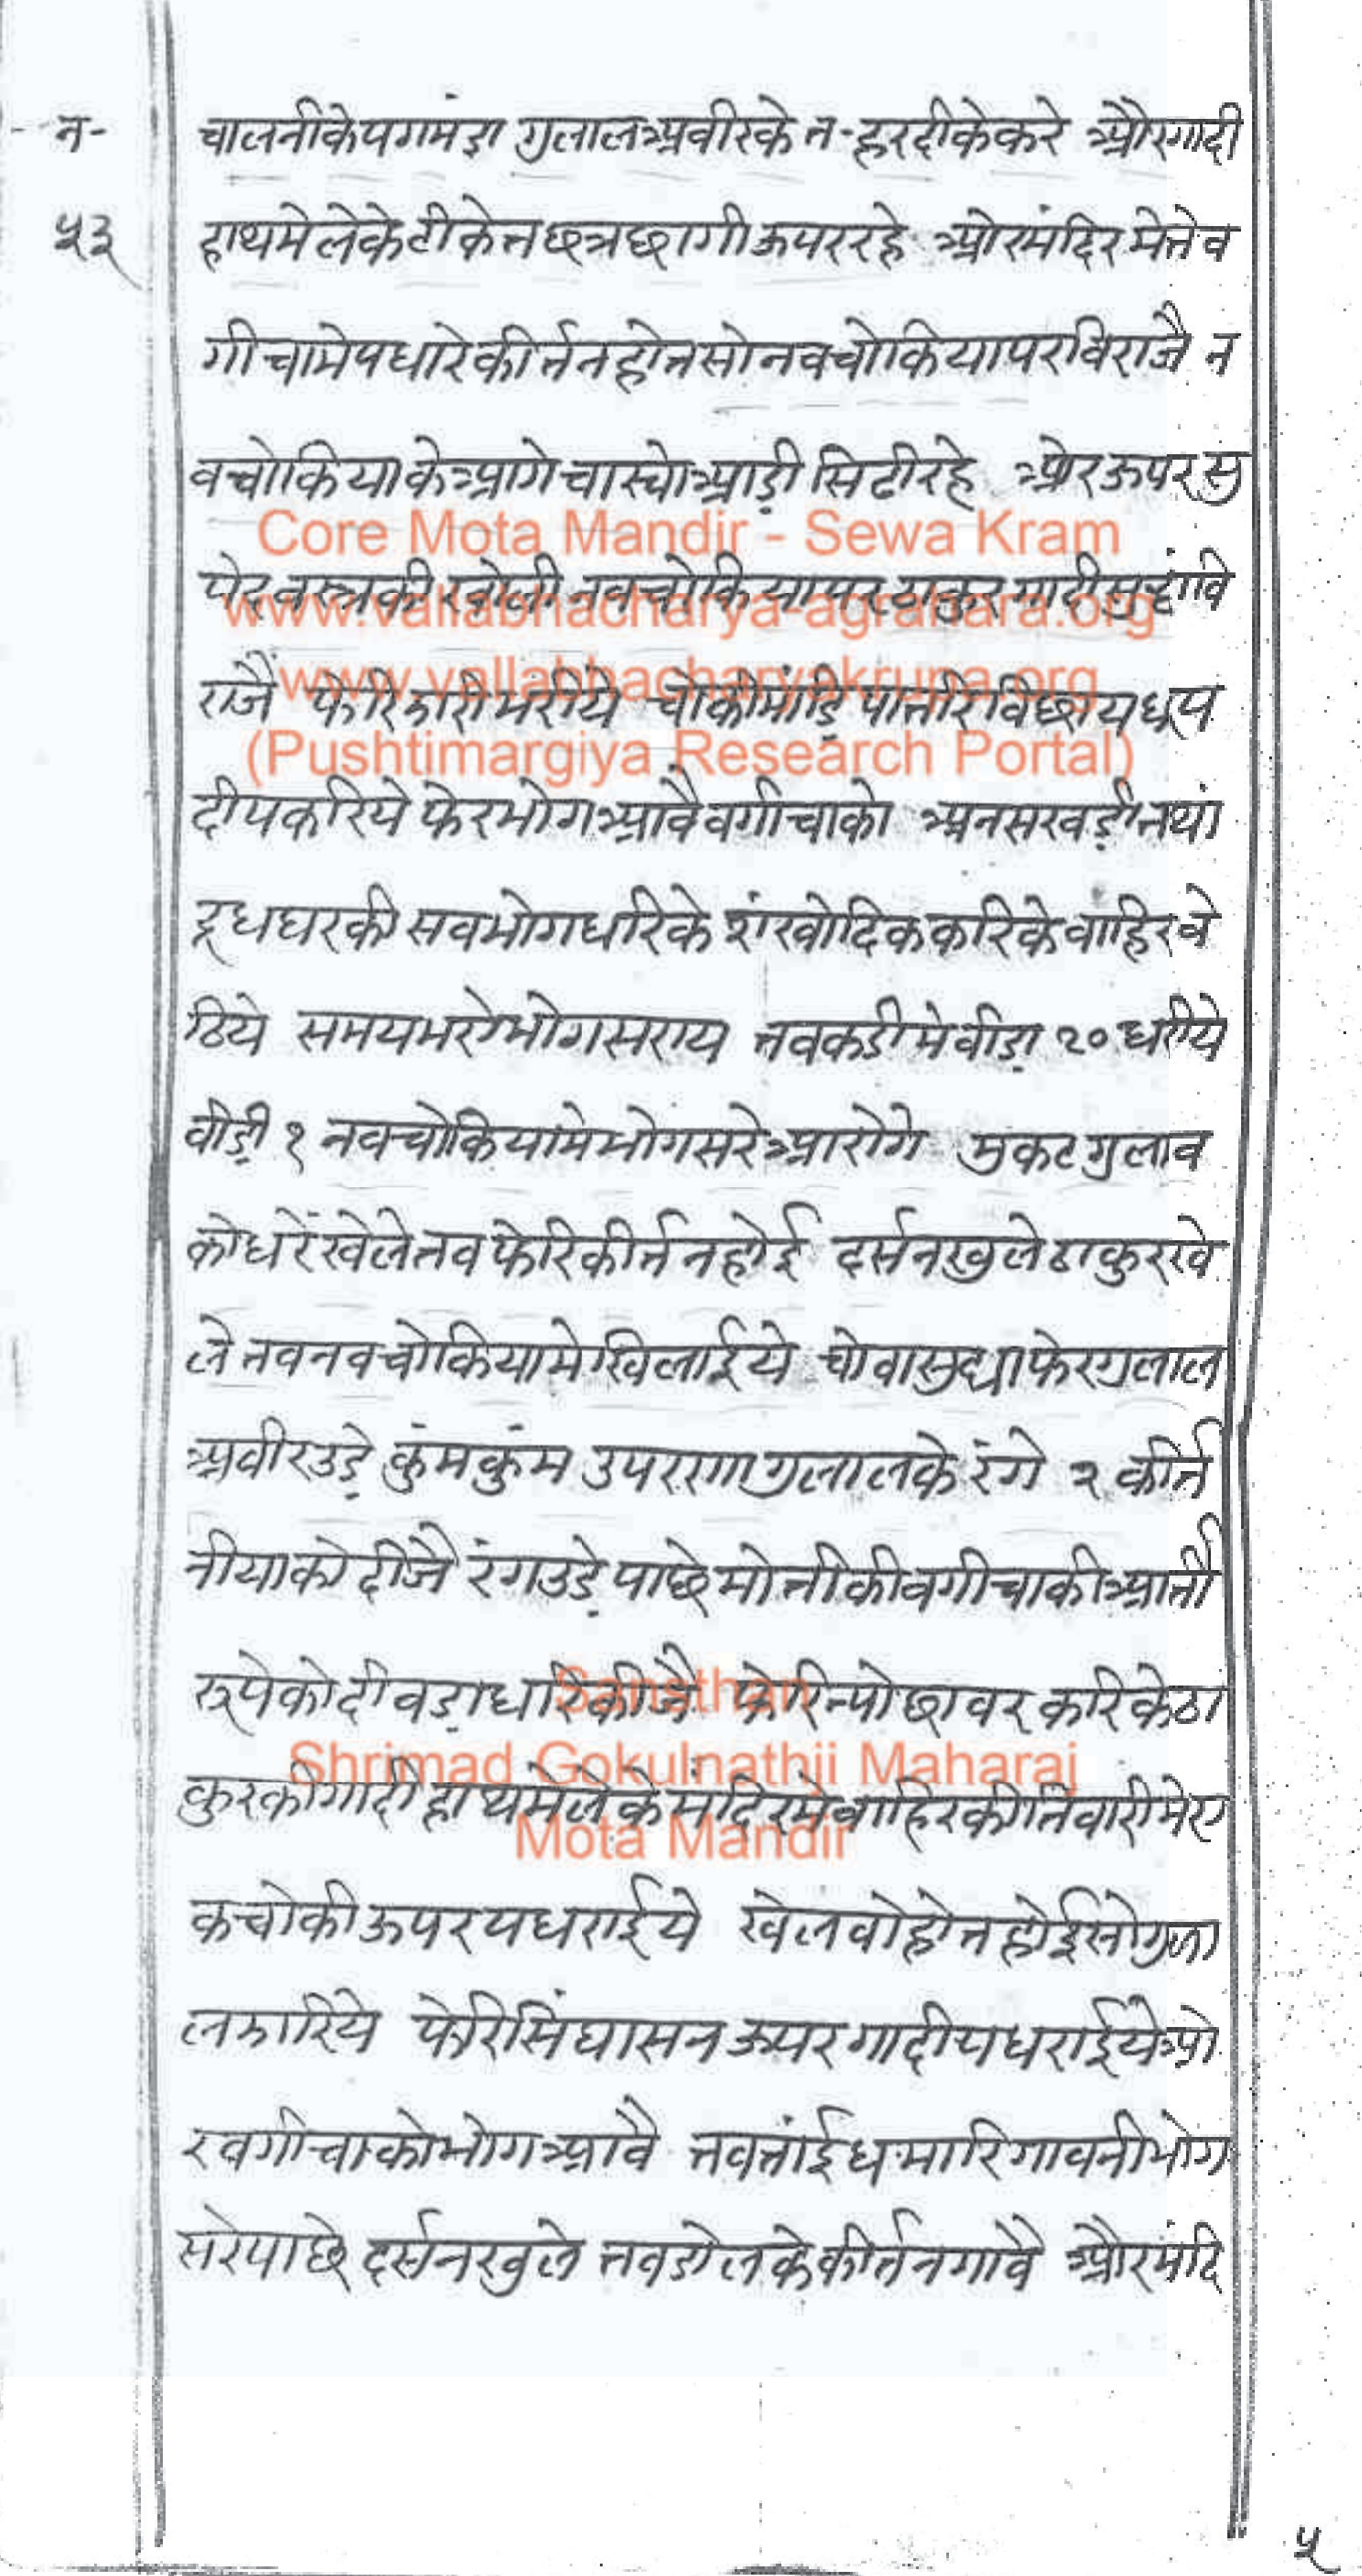 न-
५३
चालनीके पगमंडा गुलाल अवीरके न-हरदीके करे औरगादी
हाथमे लेके टीकेत छत्र छागी ऊपर रहे ओर मंदिर मेते व
गीचामे पधारे कीर्तन होत सो नव चोकिया पर विराजै न
व चोकिया के आगे चास्चो आड़ी सिढी रहे ओर ऊपर सु
पेर वस्त्रकी खोली नव चोकिया पर ठाकुर गादी सुद्धां वि
राजै फेरि झारी भरीये चोकी मांड़ि पातरि विछाय धूप
दीप करिये फेर भोग आवै वगीचाको अनसखड़ी तथां
दूधघरकी सव भोग धरिके शंखोदिक करिके वांहिर वे
ठिये समय भरो भोग सराय तवकडी मे वीड़ा २० धरीये
वीड़ी १ नव चोकियामे भोग सरे आरोगे मुकट गुलाव
को धरें खेले तव फेरि कीर्तन होई दर्सन खुले ठाकुर खे
ले नव नव चोकियामे खिलाईये चोवा सुधा फेर गुलाल
अवीर उड़े कुंमकुंम उपररणा गुलालके रंगे २ कीर्त
नीयाको दीजै रंग उड़े पाछे मोतीकी वगीचाकी आर्ती
रूपेको दीवड़ा धरि कीजै फेरि न्योछावर करिके ठा
कुरकी गादी हाथमे लेके मंदिरमे वाहिरकी तिवारीमे ए
क चोकी ऊपर पधराईये खेल वोहोत होई सो गुला
ल झारिये फेरि सिंघासन ऊपर गादी पधराईये ओ
र वगीचाको भोग आवै तव तांई धमारि गावनी भोग
सरे पाछे दर्सन खुले तव डोलके कीर्तन गावै और मंदि
५
Core Mota Mandir - Sewa Kram
www.vallabhacharya-agrahara.org
www.vallabhacharyakrupa.org
(Pushtimargiya Research Portal)
Sansthan
Shrimad Gokulnathji Maharaj
Mota Mandir